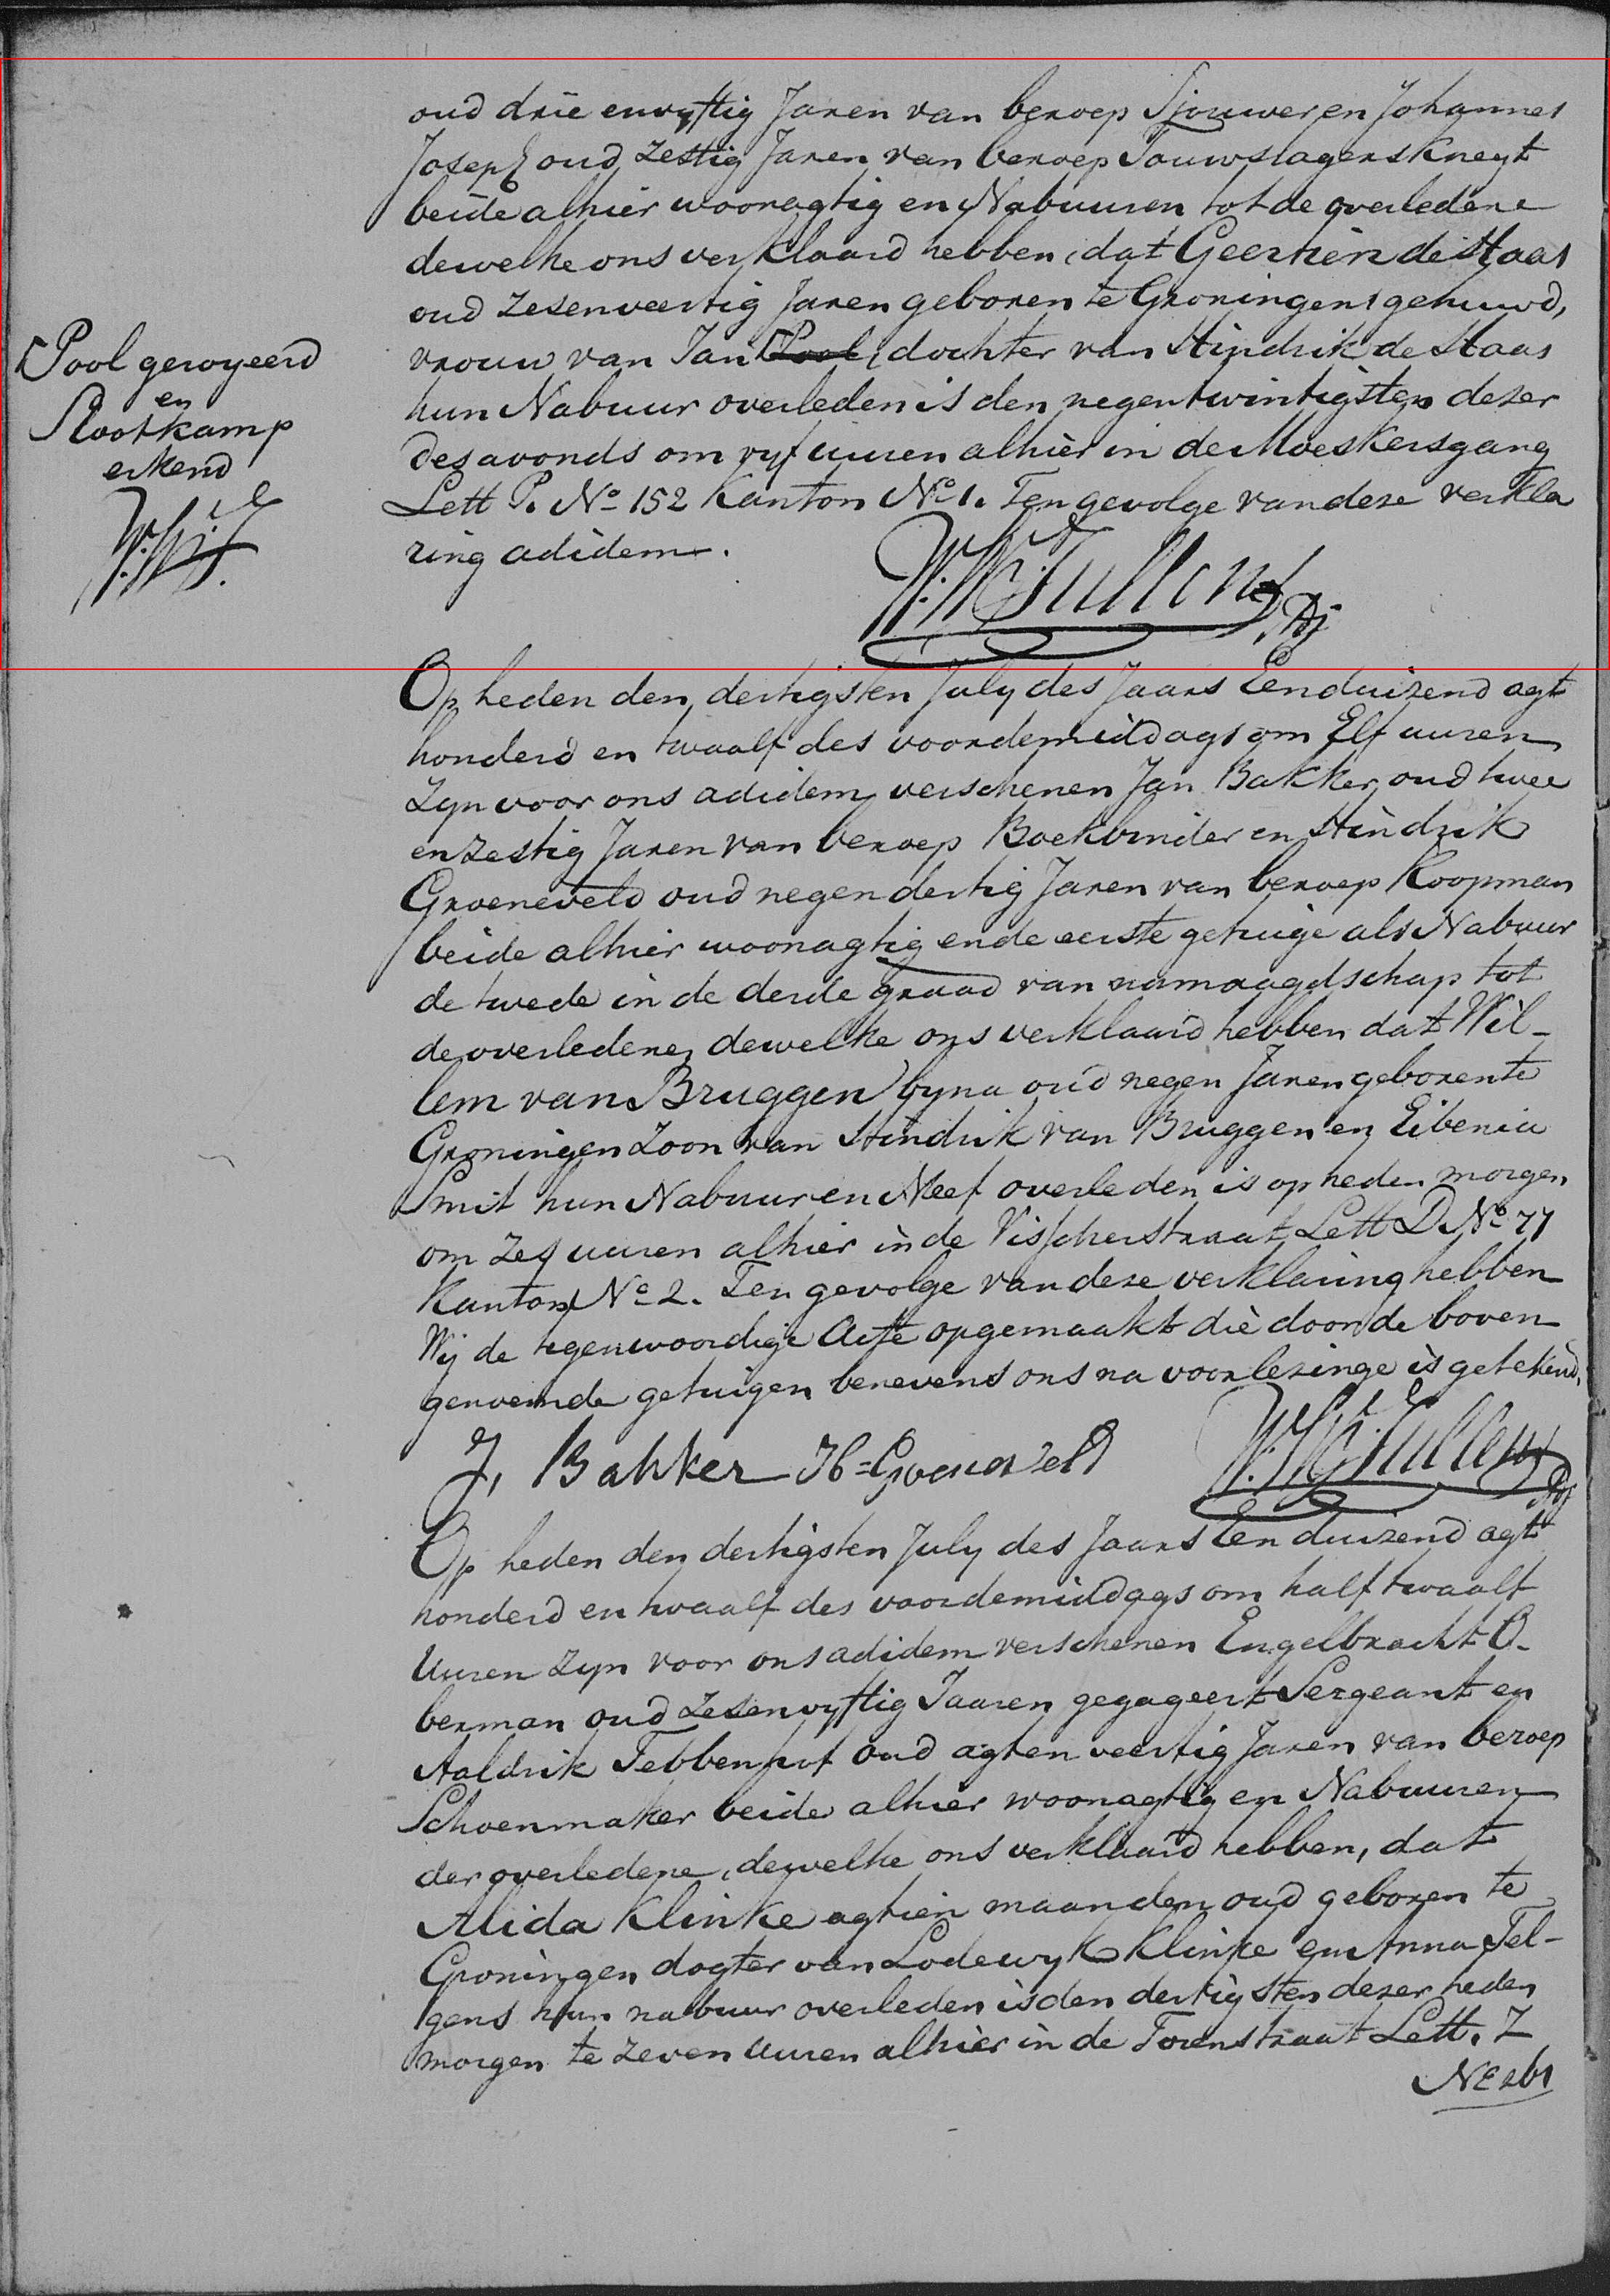 oud drie envyftig Jaren van beroep Sjouwer en Johannes
Joseph oud zestig Jaren van beroep Touwslagersknegt
beide alhier woonagtig en Nabuuren tot de overledene
dewelke ons verklaard hebben, dat Geertien de Haas
oud zesenveertig Jaren geboren te Groningen, gehuwd,
vrouw van Jan Pool, dochter van Hindrik de Haas
hun Nabuur overleden is den negentwintigsten dezer
des avonds om vyf uuren alhier in de Moeskersgang
Lett P. No 152 Kanton No 1. Ten gevolge van deze verkla
ring adidem.
Pool geroyeerd
en
Slootkamp
erkend
Op heden den dertigsten July des Jaars Eenduizend agt
honderd en twaalf des voordemiddags om Elf uuren
Zyn voor ons adidem verschenen Jan Bakker oud twee
en zestig Jaren van beroep Boekbinder en Hindrik
Groeneveld oud negen dertig Jaren van beroep Koopman
beide alhier woonagtig en de eerste getuige als Nabuur
de twede in de derde graad van namaagdschap tot
de overledene, dewelke ons verklaard hebben dat Wil-
lem van Bruggen byna oud negen Jaren geboren te
Groningen Zoon van Hindrik van Bruggen en Eibenia
Smit hun Nabuur en Neef overleden is op heden morgen
om zes uuren alhier in de Visscherstraat Lett D No 77
Kanton No 2. Ten gevolge van deze verklaring hebben
Wij de tegenwoordige Acte opgemaakt die door de boven
genoemde getuigen benevens ons na voorlezinge is getekend.
J. Bakker H=Groeneveld
Op heden den dertigsten July des Jaars Een duizend agt
honderd en twaalf des voordemiddags om half twaalf
Uuren zyn voor ons adidem verschenen Engelbracht O-
berman oud zesenvyftig Jaaren gegageert Sergeant en
Aaldrik Tebbenhof oud agt en veertig Jaren van beroep
Schoenmaker beide alhier woonagtig en Nabuuren
der overledene, dewelke ons verklaard hebben, dat
Alida Klinke agtien maanden oud geboren te
Groningen dogter van Lodewyk Klinke en Anna Tel-
gens hun nabuur overleden is den dertigsten dezer heden
morgen te zeven uuren alhier in de Torenstraat Lett. Z